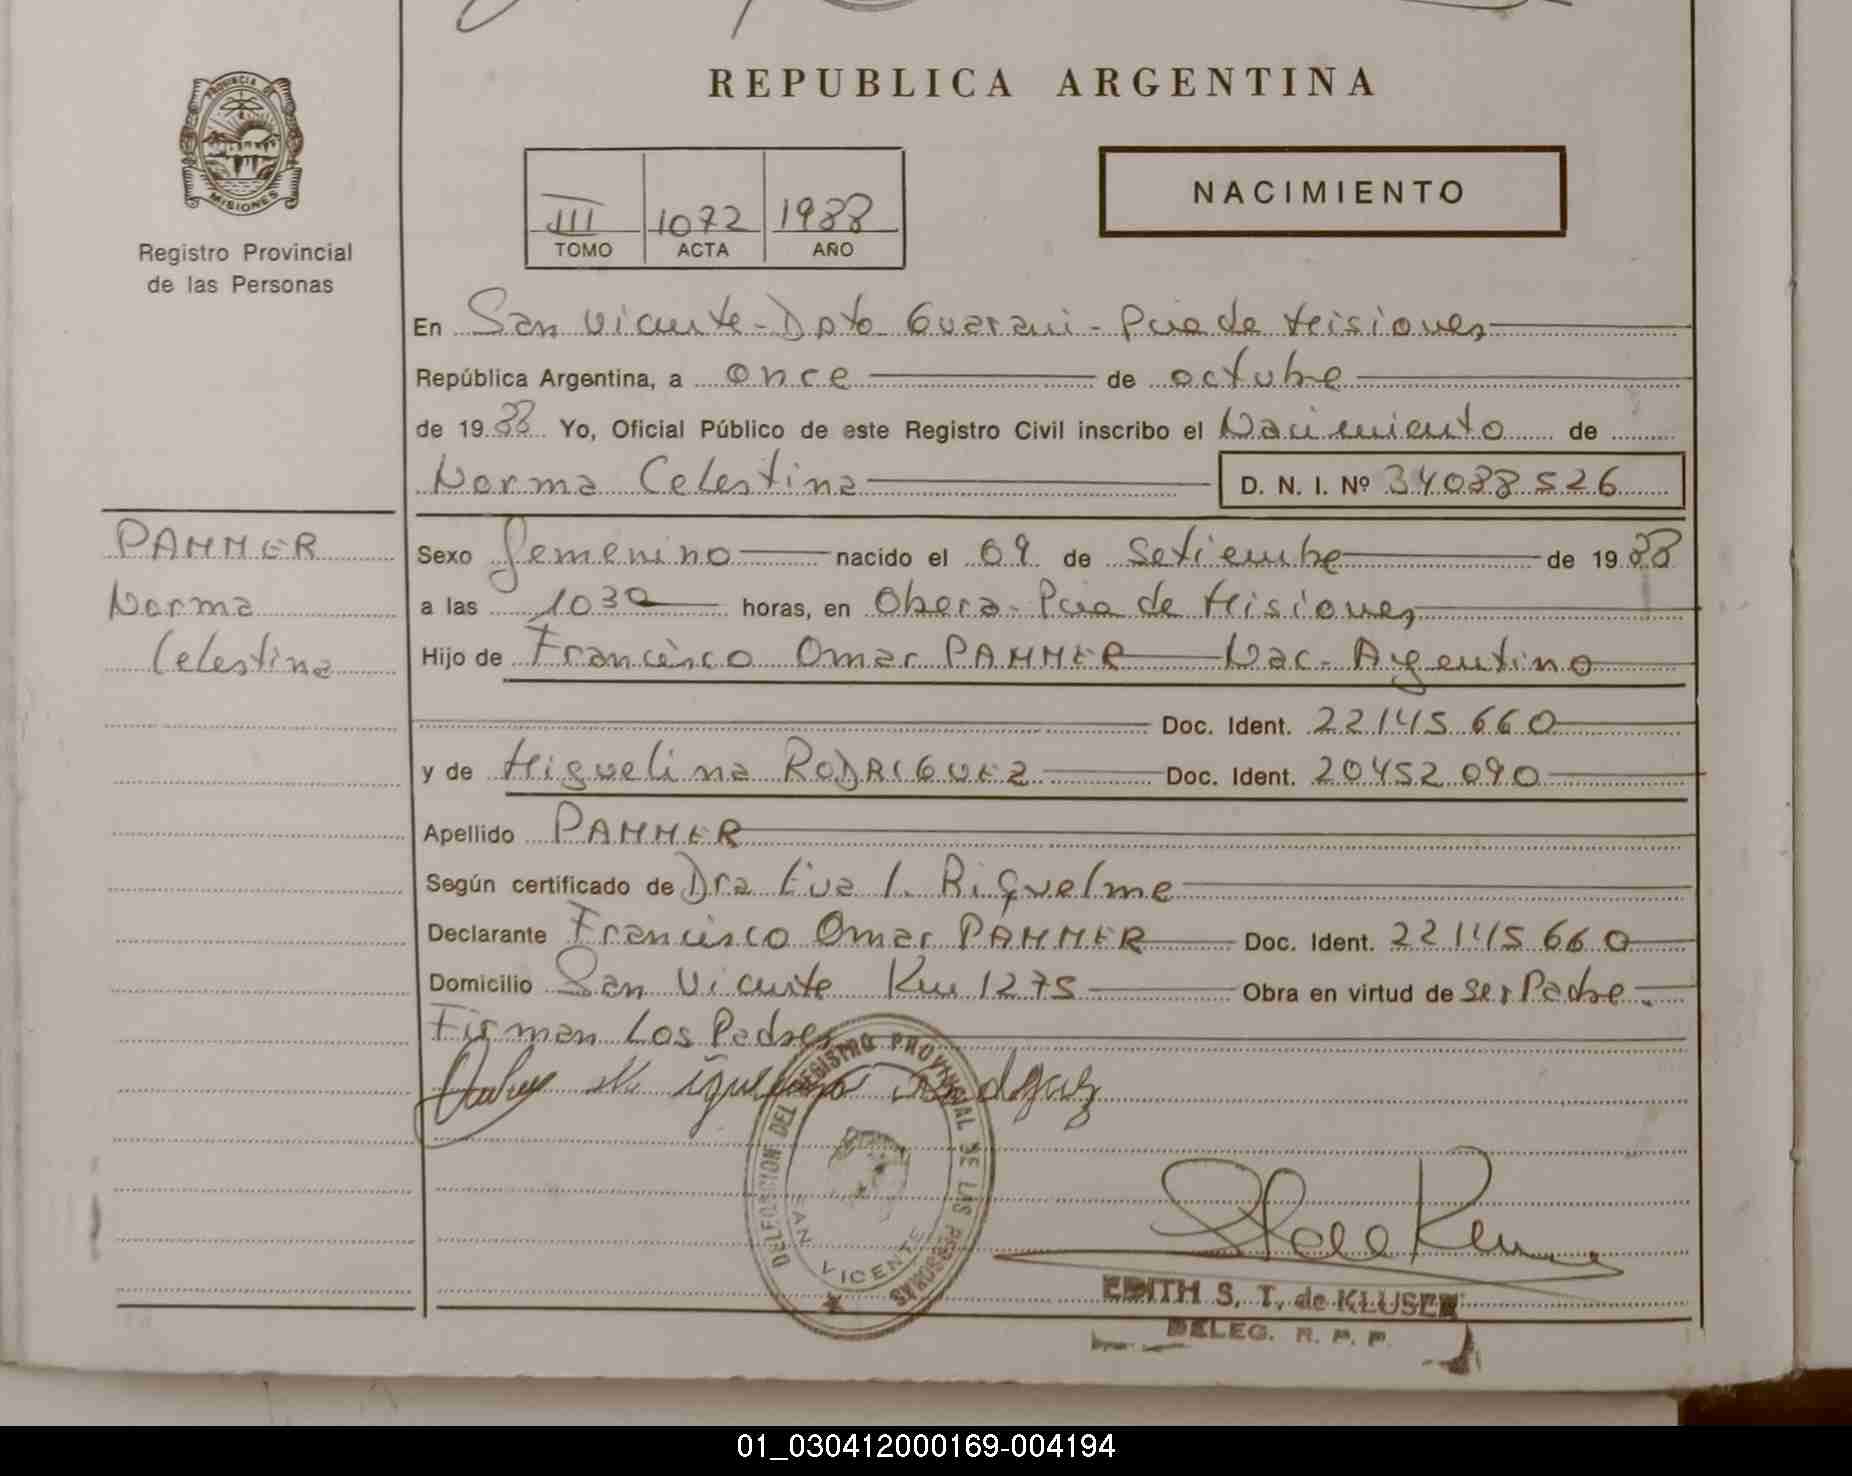 REPUBLICA ARGENTINA
PROVINCIA DE MISIONES
Registro Provincial
de las Personas
III 1072 1988
TOMO ACTA AÑO
NACIMIENTO
En San Vicente - Dpto Guarani - Pcia de Misiones
República Argentina, a once de octubre
de 1988 Yo, Oficial Público de este Registro Civil inscribo el Nacimiento de
Norma Celestina D. N. I. Nº 34088526
PAMMER
Norma
Celestina
Sexo Femenino nacido el 09 de Setiembre de 1988
a las 1030 horas, en Obera - Pcia de Misiones
Hijo de Francisco Omar PAMMER Nac - Argentino
Doc. Ident. 22145660
y de Miguelina RODRIGUEZ Doc. Ident. 20452090
Apellido PAMMER
Según certificado de Dra Eva I. Riquelme
Declarante Francisco Omar PAMMER Doc. Ident. 22145660
Domicilio San Vicente Km 1275 Obra en virtud de ser Padre.
Firman Los Padres
DELEGACION DEL REGISTRO PROVINCIAL DE LAS PERSONAS
SAN VICENTE
EDITH S. T. de KLUSER
DELEG. R. P. P.
01_030412000169-004194